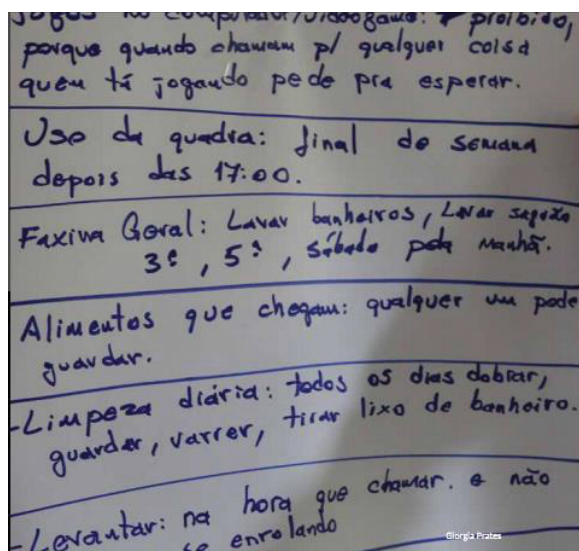 Jogos no computador/videogame: proibido,
porque quando chamam p/ qualquer coisa
quem tá jogando pede pra esperar.
Uso da quadra: final de semana
depois das 17:00.
Faxina Geral: Lavar banheiros, Lavar
3ª, 5ª, sábado pela manhã.
Alimentos que chegam: qualquer um pode
guardar.
-Limpeza diária: todos os dias dobrar,
guardar, varrer, tirar lixo de banheiro.
-Levantar: na hora que chamar. e não
se enrolando
Giorgia Prates